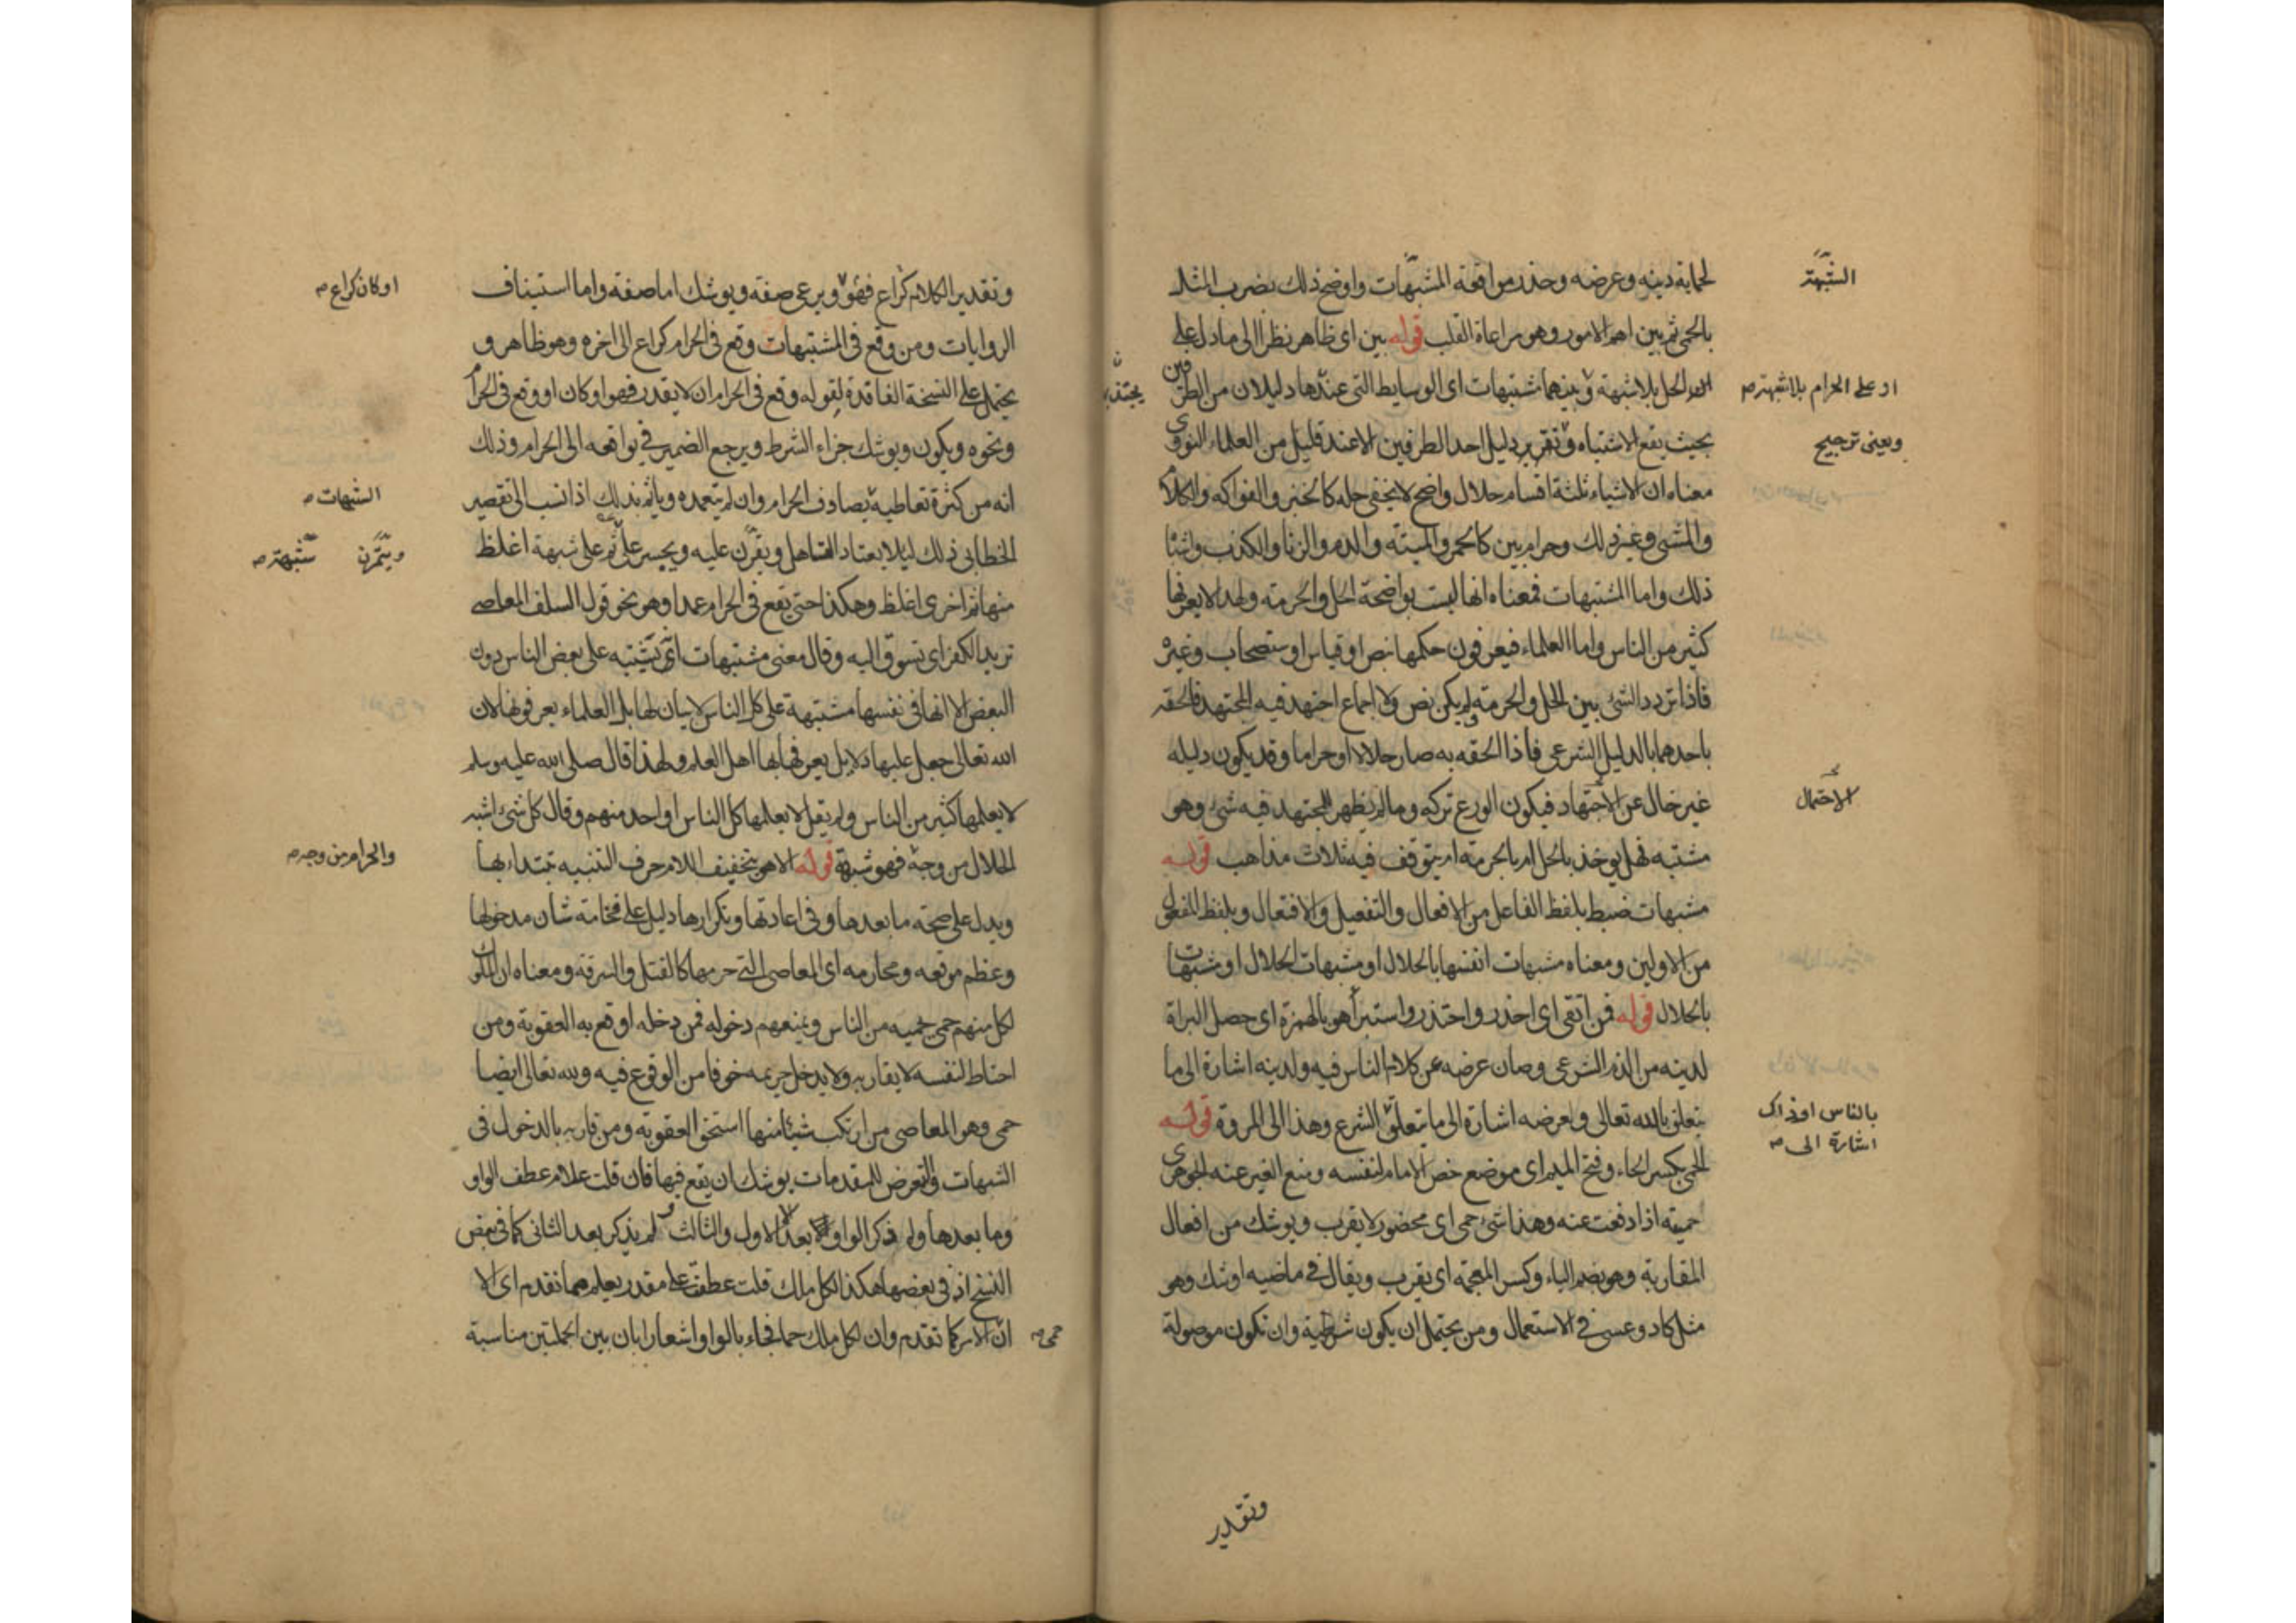 لحماية دينه وعرضه وحذر من اقعة المشبهات واوضح ذلك بضرب المثل
بالحمى ثم بين اهم الامور وهو مراعاة القلب قوله بين اى ظاهر نظرا الى ما دل على
ان الحل بلا شبهة وبينهما مشتبهات اى الوسايط التى عندها دليلان من الطرفين
بحيث يقع الاشتباه وتقرير دليل احد الطرفين الا عند قليل من العلماء النووى
معناه ان الاشياء ثلثة اقسام حلال واضح لا يخفى حله كالخبز والفواكه والكلام
والمشى وغير ذلك وحرام بين كالخمر والميتة والدم والزنا والكذب واشباه
ذلك واما المشتبهات فمعناه انها ليست بواضحة الحل والحرمة ولهذا لا يعرفها
كثير من الناس واما العلماء فيعرفون حكمها بنص او قياس او ستصحاب وغيره
فاذا تردد الشئ بين الحل والحرمة ولم يكن نص ولا اجماع اجتهد فيه المجتهد فالحقه
باحدهما بالدليل الشرعى فاذا الحقه به صار حلالا او حراما وقد يكون دليله
غير خال عن الاجتهاد فيكون الورع تركه وما لم يظهر للمجتهد فيه شئ وهو
مشتبه فهل يوخذ بالحل ام بالحرمة ام يتوقف فيه ثلاث مذاهب قوله
مشبهات ضبط بلفظ الفاعل من الافعال والتفعيل والافتعال وبلفظ المفعول
من الاولين ومعناه مشبهات انفسها بالحلال او مشبهات الحلال او مشبهات
بالحلال قوله فمن اتقى اى احذر واحتذر واستبرأ هو بالهمزة اى حصل البراة
لدينه من الذم الشرعى وصان عرضه عن كلام الناس فيه ولدينه اشارة الى ما
يتعلق بالله تعالى ولعرضه اشارة الى ما يتعلق الشرع وهذا الى المروة قوله
الحمى بكسر الحاء وفتح الميم اى موضع خص الامام لنفسه ومنع الغير عنه الجوهرى
حميته اذا دفعت عنه وهذا شئ حمى اى محضور لا يقرب ويوشك من افعال
المقاربة وهو بضم الياء وكسر المعجمة اى يقرب ويقال فى ماضيه اوشك وهو
مثل كاد وعسى فى الاستعمال ومن يحتمل ان يكون شرطية وان تكون موصولة
وتقدير
الشبهة
او على الحرام بلا شبهة صح
وبعنى ترجيح
الاحتمال
بالناس او ذاك
اشارة الى صح
وتقدير الكلام كراع فهو ويرعى صفة ويوشك اما صفة واما استيناف
الروايات ومن وقع فى المشتبهات وقع فى الحرام كراع الى اخره وهو ظاهر و
يحتمل على النسخة الفاقدة لقوله وقع فى الحرام ان لا يقدر فهو او كان او وقع فى الحرام
ونحوه ويكون ويوشك جزاء الشرط ويرجع الضمير فى يواقعه الى الحرام وذلك
انه من كثرة تعاطيه يصادف الحرام وان لم يتعمده وياثم بذلك اذا نسب الى تقصير
الخطابى ذلك ليلا يعتاد التساهل ويقرن عليه ويجسر على ثم على شبهة اغلظ
منها ثم اخرى اغلظ وهكذا حتى يقع فى الحرام عمدا وهو نحو قول السلف المعاصى
تريد الكفر اى تسوق اليه وقال معنى مشتبهات اى تشتبه على بعض الناس دون
البعض لا انها فى نفسها مشتبهة على كل الناس لا بيان لها بل العلماء يعرفونها لان
الله تعالى جعل عليها دلايل يعرفها بها اهل العلم ولهذا قال صلى الله عليه وسلم
لا يعلمها كثير من الناس ولم يقل لا يعلمها كل الناس او احد منهم وقال كل شئ اشبه
الحلال من وجه فهو شبهة قوله الا هو بتخفيف اللام حرف التنبيه تبتداء بها
ويدل على صحة ما بعدها وفى اعادتها وتكرارها دليل على فخامة شان مدخولها
وعظم موقعه ومحارمه اى المعاصى التى حرمها كالقتل والسرقة ومعناه ان الملوك
لكل منهم حمى يحميه من الناس ويمنعهم دخوله فمن دخله اوقع به العقوبة ومن
احتاط لنفسه لا يقاربه ولا يدخل حريمه خوفا من الوقوع فيه ولله تعالى ايضا
حمى وهو المعاصى من ارتكب شيئا منها استحق العقوبة ومن قاربه بالدخول فى
الشبهات والتعرض للمقدمات يوشك ان يقع فيها فان قلت علام عطف الواو
وما بعدها ولم ذكر الواو الا بعد الاول والثالث ولم يذكر بعد الثانى كما فى بعض
النسخ اذ فى بعضها هكذا لكل ملك قلت عطف على مقدر يعلم مما تقدم اى الا
ان الامر كما تقدم وان لكل ملك حما فجاء بالواو اشعارا بان بين الجملتين مناسبة
او كان كراع صح
الشبهات صح
ويتمرن شبهة صح
والحرام من وجه صح
حمى صح